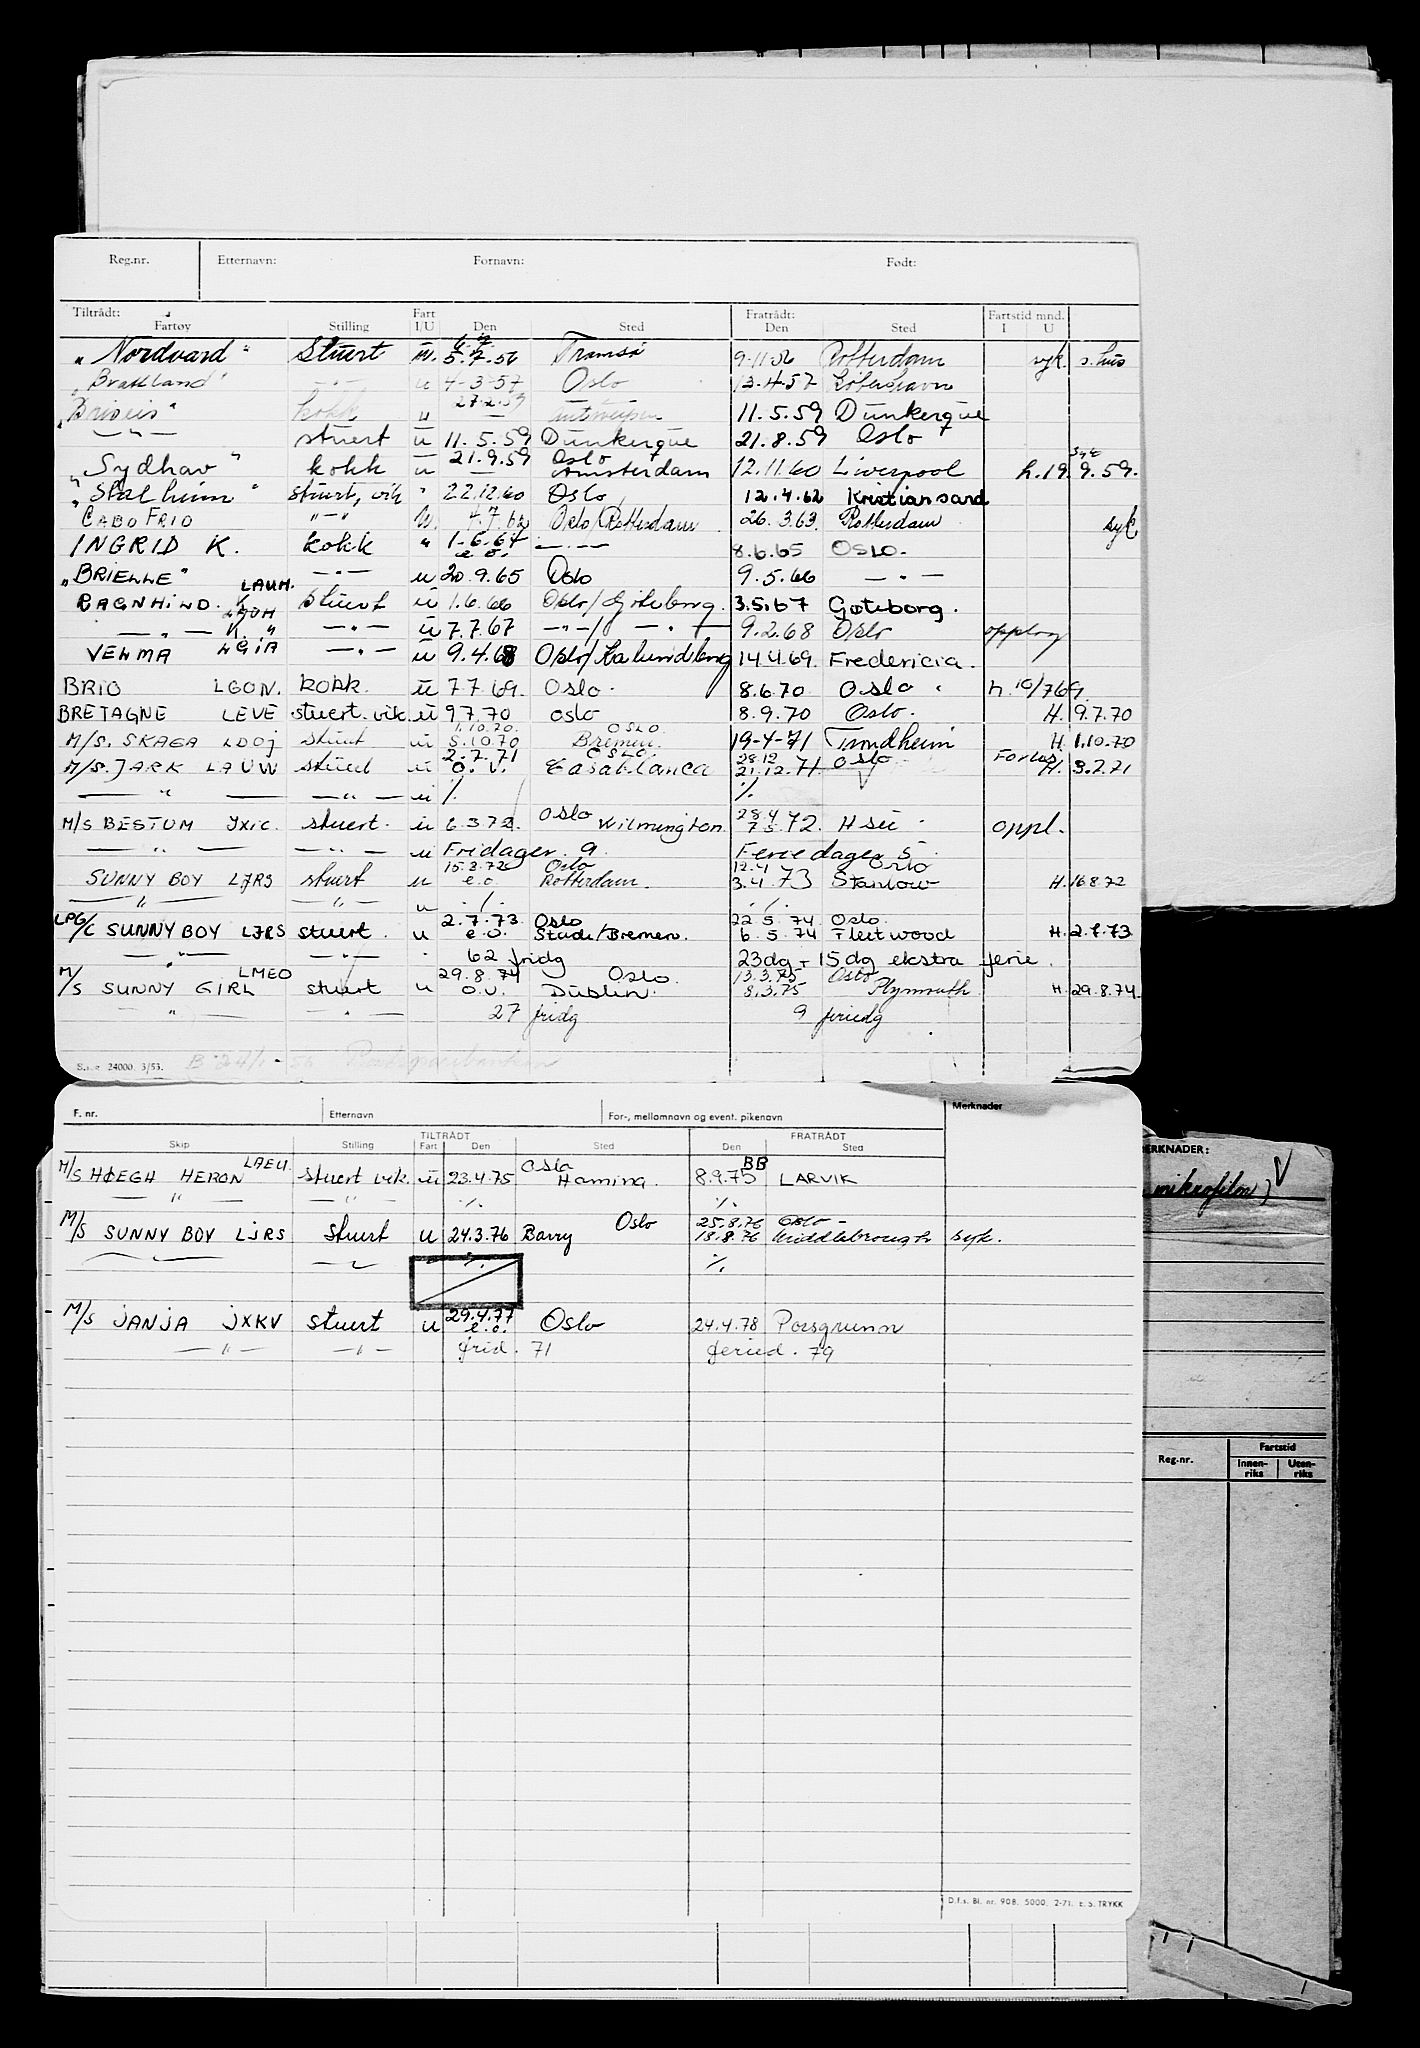 Reg.nr. Etternavn: Fornavn: Født:
Tiltrådt: Fart Fratrådt: Fartstid mnd.
Fartøy Stilling I/U Den Sted Den Sted I U
"Nordvard" Stuert u. 5.7.56 Tromsø 9-11-56 Rotterdam syk. s.hus
"Brattland" -"- u 4-3-57 Oslo 13.4.57 København
27.2.59
"Briseis" kokk u — Antwerpen 11.5.59 Dunkerque
—"— stuert u 11.5.59 Dünkerque 21.8.59 Oslo
21.9.59 Oslo
"Sydhav" kokk u — Amsterdam 12.11.60 Liverpool h. 19.9.59.
"Stalheim" stuert, vik " 22.12.60 Oslo 12.4.62 Kristiansand
CABO FRIO "-" u. 4.7.62 Oslo/Rotterdam 26.3.63. Rotterdam syk
INGRID K. kokk " 1.6.64 e.o. —"— 8.6.65 OSLO.
"BRIELLE" —"— u 20.9.65 Oslo 9.5.66 — " —
LAUH.
RAGNHILD. K. stuert u 1.6.66 Oslo/Göteborg. 3.5.67 Gøteborg.
— " — K. " —"— u 7.7.67 —"—/ — " — 9.2.68 Oslo opplag
VELMA LGIA —"— u 9.4.68 Oslo/Kalundborg 14.4.69. Fredericia.
BRIO LGON. kokk. u 7.7.69. Oslo. 8.6.70. Oslo. h. 10/7 69.
BRETAGNE LEVE stuert. vik. u 9.7.70 oslo 8.9.70 Oslo. H. 9.7.70
1.10.70. OSLO
M/S. SKAGA LDOJ stuert u 5.10.70 Bremen. 19-4-71 Trondheim H. 1.10.70
2.7.71 OSLO. 28.12 Oslo
M/S. JARK LAUW stuert u o.v. Casablanca 21.12.71. H. 3.7.71
— " — —"— u ./. ./.
Oslo 28.4
M/S BESTUM JXIC. stuert. u 6.3.72. Wilmington 7.5.72. Hseu. oppl.
— " — —"— u Fridager. 9. Feriedager 5.
15.8.72 Oslo 12.4 Oslo
SUNNY BOY LJRS stuert u e.o. Rotterdam. 3.4.73 Stanlow H. 16.8.72
— " — —"— u ./. ./.
2.7.73. Oslo 22.5.74 Oslo.
LPG/C SUNNY BOY LJRS stuert. u e.o. Stade/Bremen. 6.5.74 Fleetwood H. 2.7.73
— " — — " — " 62 fridg 23dg + 15dg ekstra ferie.
LMEO 29.8.74 Oslo. 13.3.75 Oslo
M/S SUNNY GIRL stuert u o.v. Dublin. 8.3.75 Plymouth H. 29.8.74.
— " — — " — 27 fridg 9 feriedg
24000. 3/53.
F. nr. Etternavn For-, mellomnavn og event. pikenavn Merknader
TILTRÅDT FRATRÅDT
Skip Stilling Fart Den Sted Den Sted
LAEU. Oslo BB
M/S HØEGH HERON stuert vik. u 23.4.75 Hamina. 8.9.75 LARVIK
— " — — " — ./. ./.
Oslo 25.8.76 Oslo -
M/S SUNNY BOY LJRS Stuert u 24.3.76 Barry 18.8.76 Middlebrough syk.
— " — — " — ./. ./.
M/S JANJA JXKV stuert u 29.4.77 e.o. Oslo 24.4.78 Porsgrunn
— " — — " — frid. 71 feried. 79
D.f.s. Bl. nr. 908. 5000. 2-71. E.S. TRYKK
MERKNADER:
mikrofilm)
Fartstid
Reg.nr. Innen-riks Uten-riks